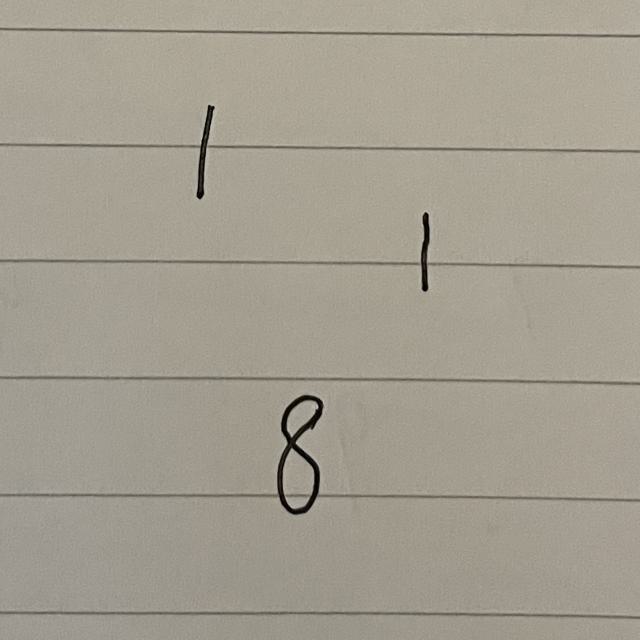 1
1
8